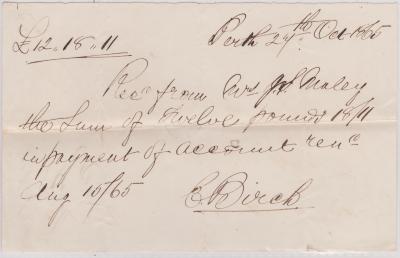 £12-18-11 Perth 24th Oct 1865
Recd from Mrs J S Maley
the Sum of Twelve pounds 18/11
in payment of account
Aug 15/65 E Birch